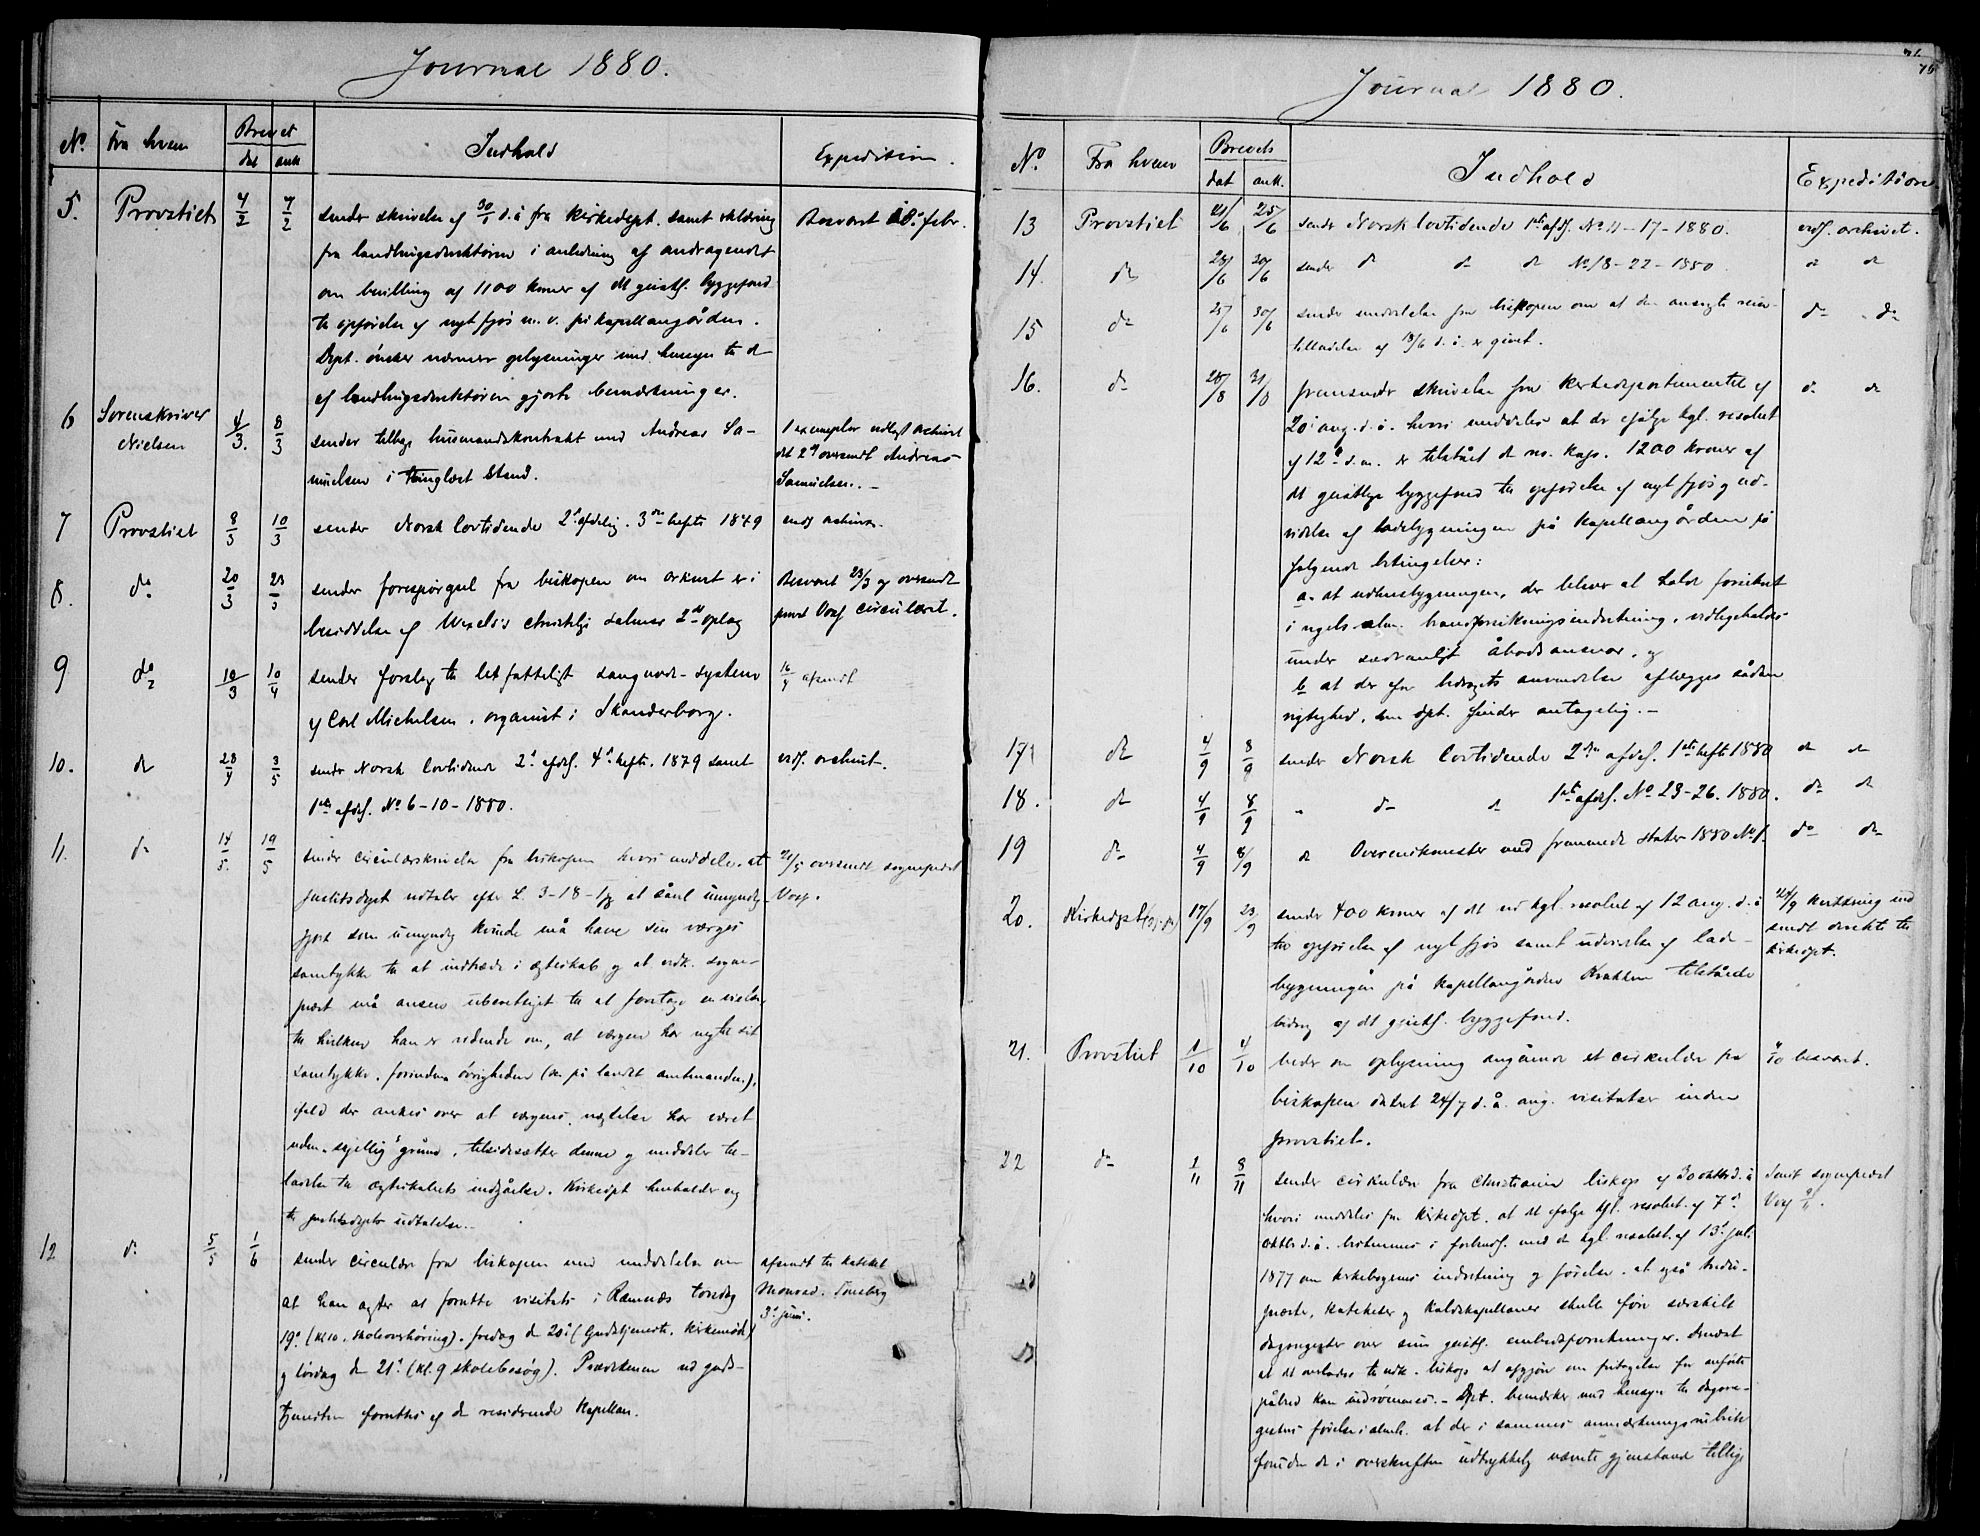 Journal 1880.
No. Fra hvem Brevet dat ank Indhold Expedition.
5. Provstiet 4/2 7/2 sender skrivelse af 30/1 d.å fra Kirkedept. samt erklæring Besvaret 10. febr.
fra landbrugsdirektøren i anledning af andragendet
om bevilling af 1100 kroner af det geistl. byggefond
til opførelse af nyt fjøs m. v. på kapellangården.
Dept. ønsker nærmere oplysninger med hensyn til de
af landbrugsdirektøren gjorte bemærkninger.
6 Sorenskriver Nielsen 4/3. 8/3 sender tilbage husmandskontrakt med Andreas Sa- 1 exemplar
det 2det oversendt Andreas
muelsen i tinglæst Stand. Samuelsen. -
7 Provstiet 8/3 10/3 sender Norsk lovtidende 2d afdelig. 3die hefte 1879 archivet.
8. do 20/3 23/3 sender forespørgsel fra biskopen om orkint er i Besvaret 23/3 og oversendt
besiddelse af Wexels's christelige salmer 2det oplag circulæret.
9 do 10/3 10/4 sender forslag til letfatteligt sangnode-system 16/4 afsendt
af Carl Michelsen. organist i Skanderborg.
10. do 28/4 3/5 sender Norsk lovtidende 2d afdel. 4d hefte. 1879 samt vedl. archivet.
1ste afdel. No 6-10-1880.
11. do 14/5. 19/5 sender circulærskrivelse fra biskopen hvori meddeles. at 21/5 oversendt sognepræst
justitsdept udtaler efter L. 3-18- at såvel umyndig- Vogt.
gjort som umyndig kvinde må have sin værges
samtykke til at indtræde i ægteskab og at vedk. sogne-
præst må ansees uberettiget til at foretage en vielse,
til hvilken han er vidende om, at værgen har nægtet sit
samtykke. forinden øvrigheden (på landet amtmanden),
ifald der ankes over at værgens nægtelse har været
uden skjellig grund, tilsidesætter denne og meddeler til-
ladelse til ægteskabets indgåelse. Kirkedept henholder sig
til justitsdepts udtalelse.
12 do 5/5 1/6 sender circulær fra biskopen med meddelelse om afsendt til kateket
at han agter at foretage visitats i Ramnæs torsdag Monrad. Tønsberg
19d (kl 10. skoleoverhøring). fredag den 20d (Gudstjeneste. kirkemøde) 3d juni.
og lørdag den 21d (kl. 9 skolebesøg). Prædikenen ved guds-
tjenesten forrettes af den residerende Kapellan.
Journal 1880.
No Fra hvem Brevets dat ank. Indhold Expedition
13 Provstiet 21/6 25/6 sender Norsk lovtidende 1ste afdl. No 11-17-1880. vedl. archivet.
14. do 28/6 30/6 sender do do do No 18-22-1880 do do
15 do 25/6 30/6 sender meddelelse fra biskopen om at den ansøgte reise- do do
tilladelse af 18/6 d.å. er givet.
16. do 28/8 31/8 fremsender skrivelse fra Kirkedepartementet af do do
20d aug. d.å. hvori meddeles at der ifølge kgl. resolut
af 12d d.m. er tilstået den res. kap. 1200 kroner af
det geistlige byggefond til opførelse af nyt fjøs og ud-
videlse af ladebygningen på kapellangården på
følgende betingelser:
a. at udhusbygningen, der bliver at holde forsikret
i rigets alm. brandforsikringsindretning, vedligeholdes
under sædvanligt åbodsansvar, og
b at der for bidragets anvendelse aflægges sådan
rigtighed, som dept. finder antagelig. -
17 do 4/9 8/9 sender Norsk lovtidende 2den afdel. 1ste hefte 1880 do do
18. do 4/9 8/9 " do do 1ste afdl. No 23-26. 1880. do do
19 do 4/9 8/9 do Overenskomster med fremmede stater 1880 No 1. do do
20. Kirkedept 17/9 23/9 sender 400 kroner af det ved kgl. resolut af 12 aug. d.å 24/9 kvittering
til opførelse af nyt fjøs samt udvidelse af lade- sendt direkte til
bygningen på kapellangården Krakken tilståede kirkedpt.
bidrag af det geistl. byggefond.
21. Provstiet 1/10 4/10 beder om oplysning angående et cirkulær fra besvaret.
biskopen dateret 24/7 d.å. ang. visitatser inden
provstiet.
22 do 2/11 8/11 sender cirkulær fra Christiania biskop af 30 oktbr d.å Sendt sognepræst
hvori meddeles fra kirkedept. at det ifølge kgl. resolut. af 7d Vogt
oktbr d.å. bestemmes i forbindl. med den kgl. resolut. af 13d jul.
1877 om kirkebøgernes indretning og førelse. at også
præster, kateketer og kaldskapellaner skulle føre særskilt
dagsregister over sine geistl. embedsforretninger. dernæst
at det overlades til vedk. biskop at afgjøre om fritagelse fra anførte
påbud kan indrømmes. - Dpt. bemærker med hensyn til dagsre-
gistres førelse i almh. at der i sammes anmærkningsrubrik
foruden de i overskriften udtrykkelig nævnte gjenstande tillige